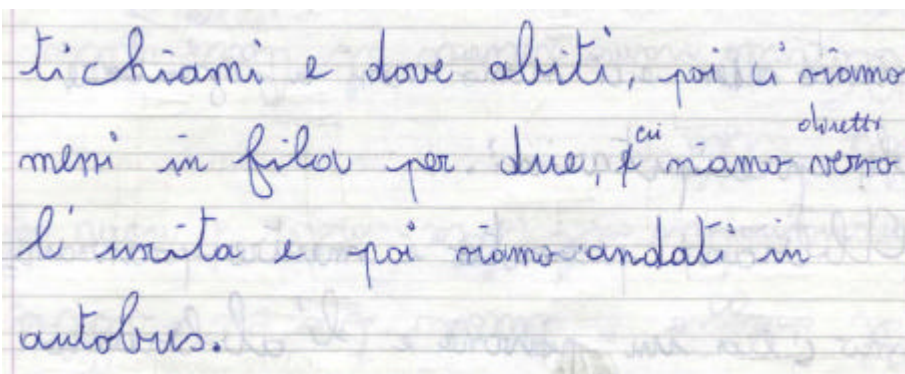 ti chiami e dove abiti, poi ci siamo
messi in fila per due, ci siamo diretti verso
l'uscita e poi siamo andati in
autobus.